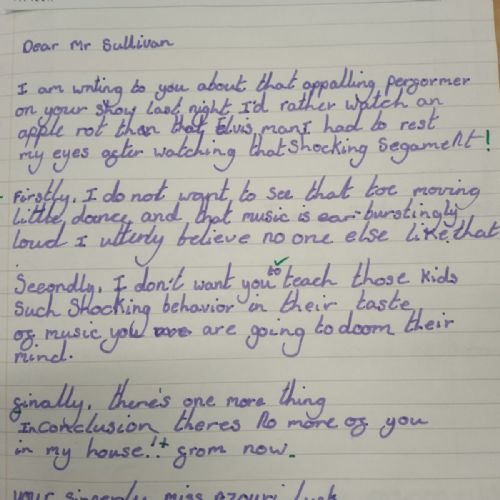 Dear Mr Sullivan
I am writing to you about that appalling performer
on your show last night I'd rather watch an
apple rot than that Elvis man I had to rest
my eyes after watching that shocking segament!
Firstly, I do not want to see that toe moving
little dance and that music is ear-burstingly
loud I utterly believe no one else like that
.
Secondly, I don't want you to teach those kids
such shocking behavior in their taste
of music you are going to doom their
mind.
finally, there's one more thing
Inconclusion theres no more of you
in my house!! from now.
your sincerely miss luck